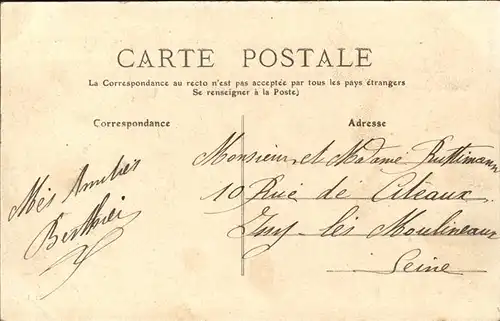 CARTE POSTALE
La Correspondance au recto n'est pas acceptée par tous les pays étrangers
Se renseigner à la Poste)
Correspondance
Adresse
Mes Amitiés
Berthier
Monsieur et Madame Ruttimann
10 Rue de Citeaux
Issy-les Moulineaux
Seine